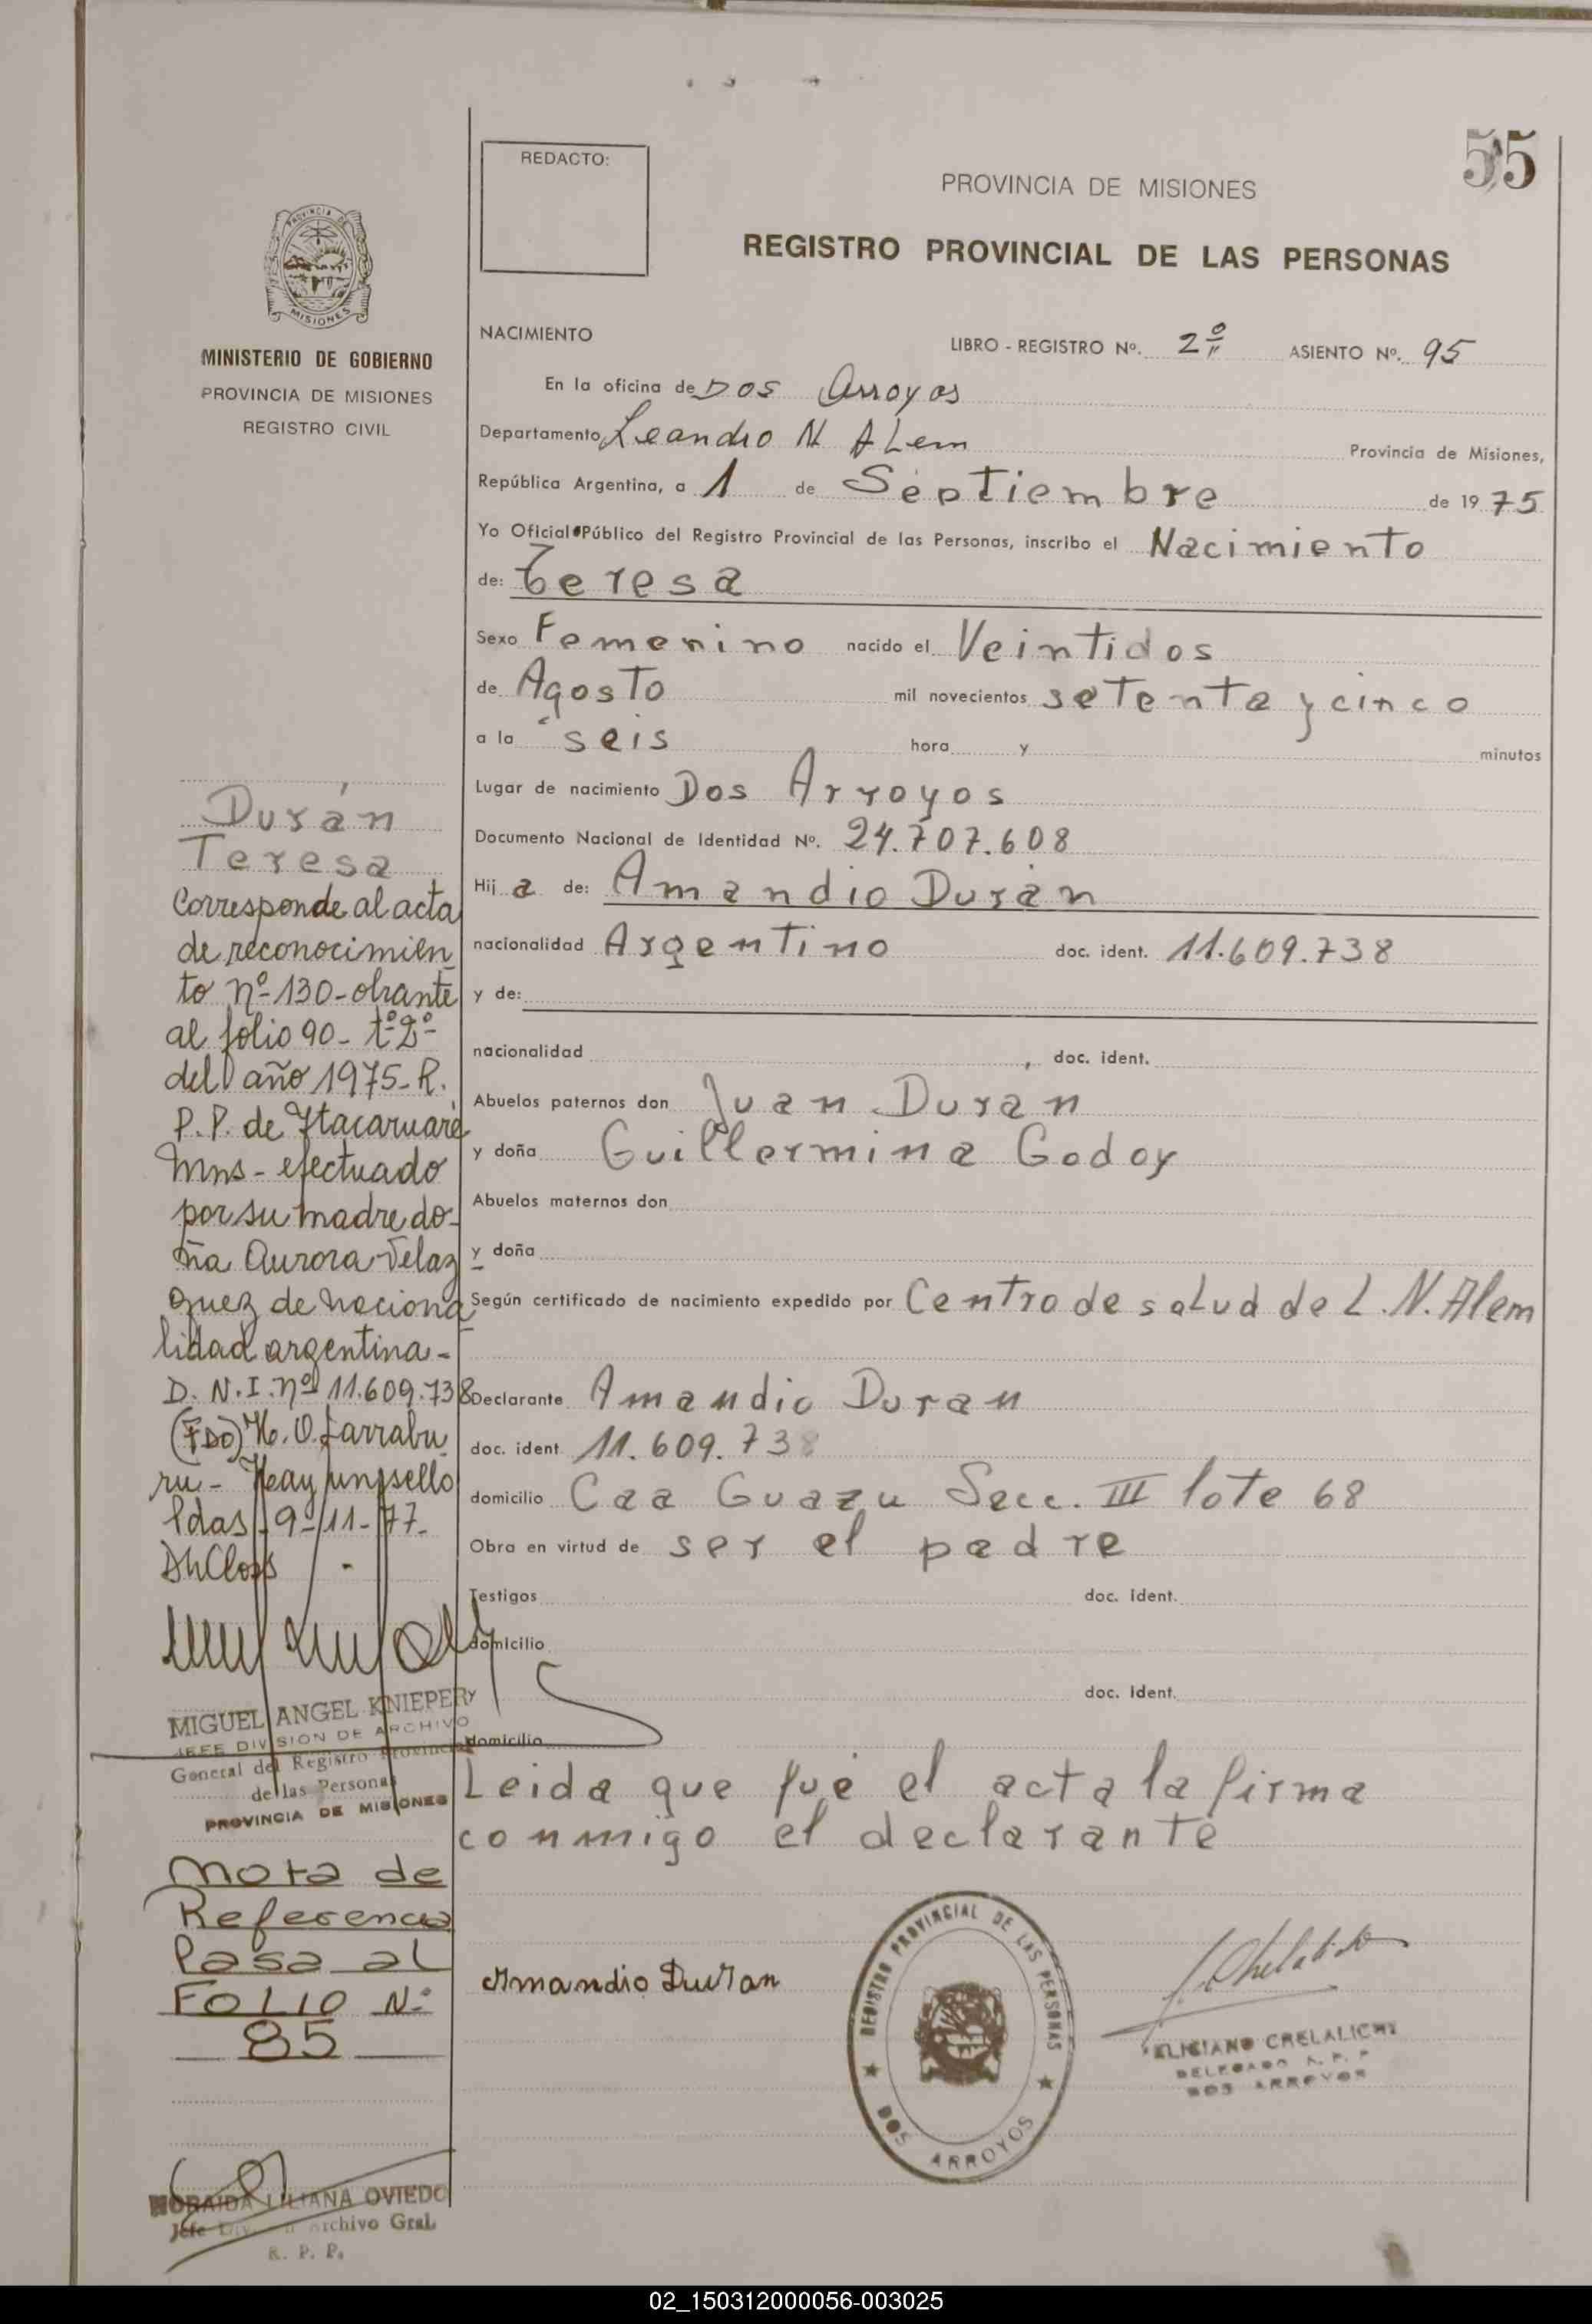 55
REDACTO:
PROVINCIA DE MISIONES
REGISTRO PROVINCIAL DE LAS PERSONAS
PROVINCIA DE
MISIONES
MINISTERIO DE GOBIERNO
PROVINCIA DE MISIONES
REGISTRO CIVIL
NACIMIENTO
LIBRO - REGISTRO Nº. 2º ASIENTO Nº. 95
En la oficina de Dos Arroyos
Departamento Leandro N Alem Provincia de Misiones,
República Argentina, a 1 de Septiembre de 1975
Yo Oficial Público del Registro Provincial de las Personas, inscribo el Nacimiento
de: Teresa
Sexo Femenino nacido el Veintidos
de Agosto mil novecientos setenta y cinco
a la seis hora y minutos
Lugar de nacimiento Dos Arroyos
Documento Nacional de Identidad Nº. 24.707.608
Hij a de: Amandio Durán
nacionalidad Argentino doc. ident. 11.609.738
y de:
nacionalidad , doc. ident.
Abuelos paternos don Juan Durán
y doña Guillermina Godoy
Abuelos maternos don
y doña
Según certificado de nacimiento expedido por Centro de salud de L.N.Alem
Declarante Amandio Duran
doc. ident 11.609.738
domicilio Caa Guazu Secc. III lote 68
Obra en virtud de ser el padre
Testigos doc. ident.
domicilio
doc. ident.
domicilio
Leida que fué el acta la firma
conmigo el declarante
Amandio Duran
REGISTRO PROVINCIAL DE LAS PERSONAS
DOS ARROYOS
CRELALICHI
DELEGADO R. P. P
DOS ARROYOS
Durán
Teresa
Corresponde al acta
de reconocimien
to nº 130-obrante
al folio 90- tº 2º-
del año 1975-R.
P.P. de Itacaruaré
Mns- efectuado
por su madre do-
ña Aurora Velaz
quez de naciona
lidad argentina-
D.N.I. nº 11.609.738
(FDO) H.O. Larrabu
ru- Hay un sello
Pdas-9-11-77-
MIGUEL ANGEL KNIEPERY
JEFE DIVISION DE ARCHIVO
General del Registro Provincial
de las Personas
PROVINCIA DE MISIONES
Nota de
Referencia
Pasa al
FOLIO Nº
85
NORAIDA LILIANA OVIEDO
Jefe Archivo Gral.
R. P. P.
02_150312000056-003025